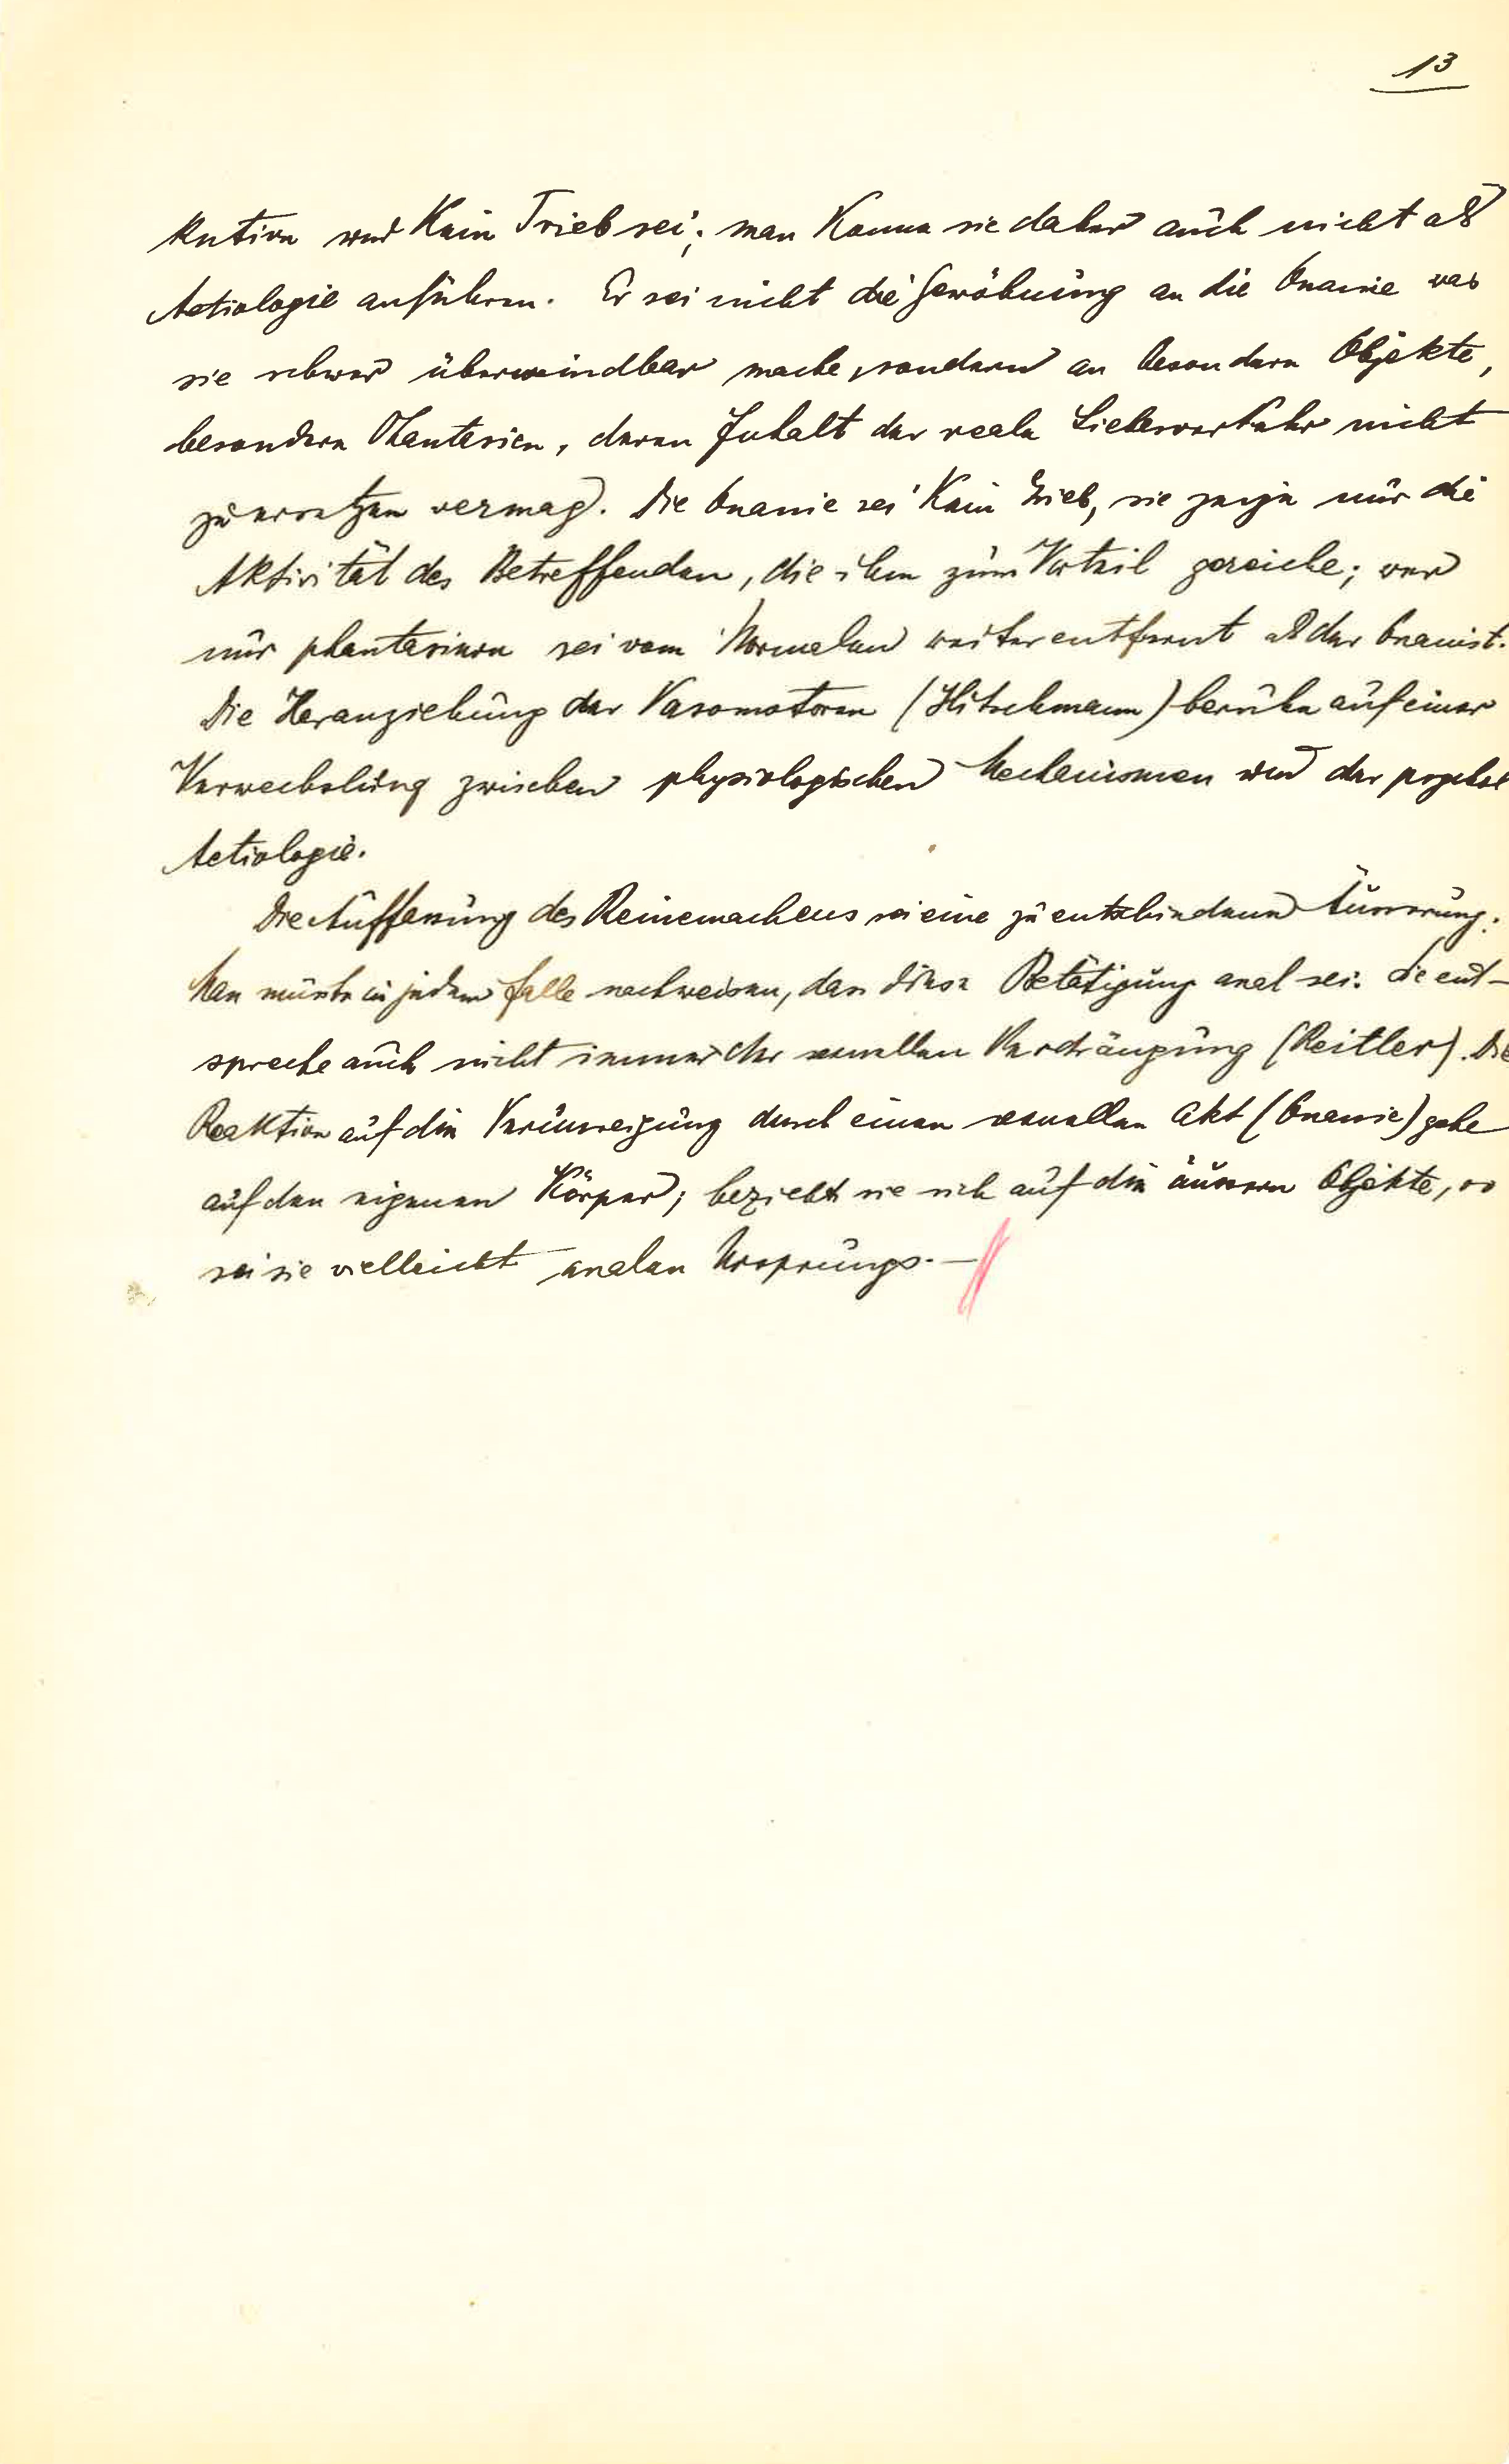 13
kution und kein Trieb sei; man könne sie daher auch nicht als
Aetiologie anführen. Er sei nicht die Gewöhnung an die Onanie was
sie schwer überwindbar mache, sondern an besondere Objekte,
besondere Phantasien, deren Inhalt der reale Liebesverkehr nicht
zu ersetzen vermag. Die Onanie sei kein Trieb, sie zeige nur die
Aktivität des Betreffenden, die ihm zum Vorteil gereiche; wer
nur phantasiere sei vom Normalen weiter entfernt als der Onanist.
Die Heranziehung der Vasomotoren (Hitschmann) beruhe auf einer
Verwechslung zwischen physiologischen Mechanismen und der psych
Aetiologie.
Die Auffassung des Reinemachens sei eine zu entschiedene Äusserung.
Man müsste in jedem Falle nachweisen, dass diese Betätigung anal sei. Sie ent-
spreche auch nicht immer der sexuellen Verdrängung (Reitler). Die
Reaktion auf die Verunreinigung durch einen sexuellen Akt (Onanie) gehe
auf den eigenen Körper; bezieht sie sich auf die äussern Objekte, so
sei sie vielleicht analen Ursprungs. —